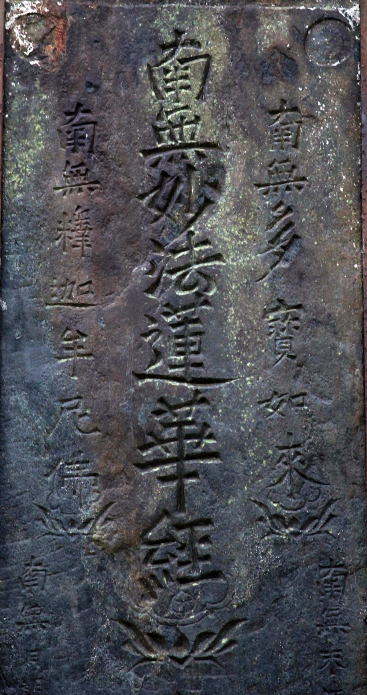 南無多寶如來
南無妙法蓮華經
南無釋迦牟尼佛
南無
南無